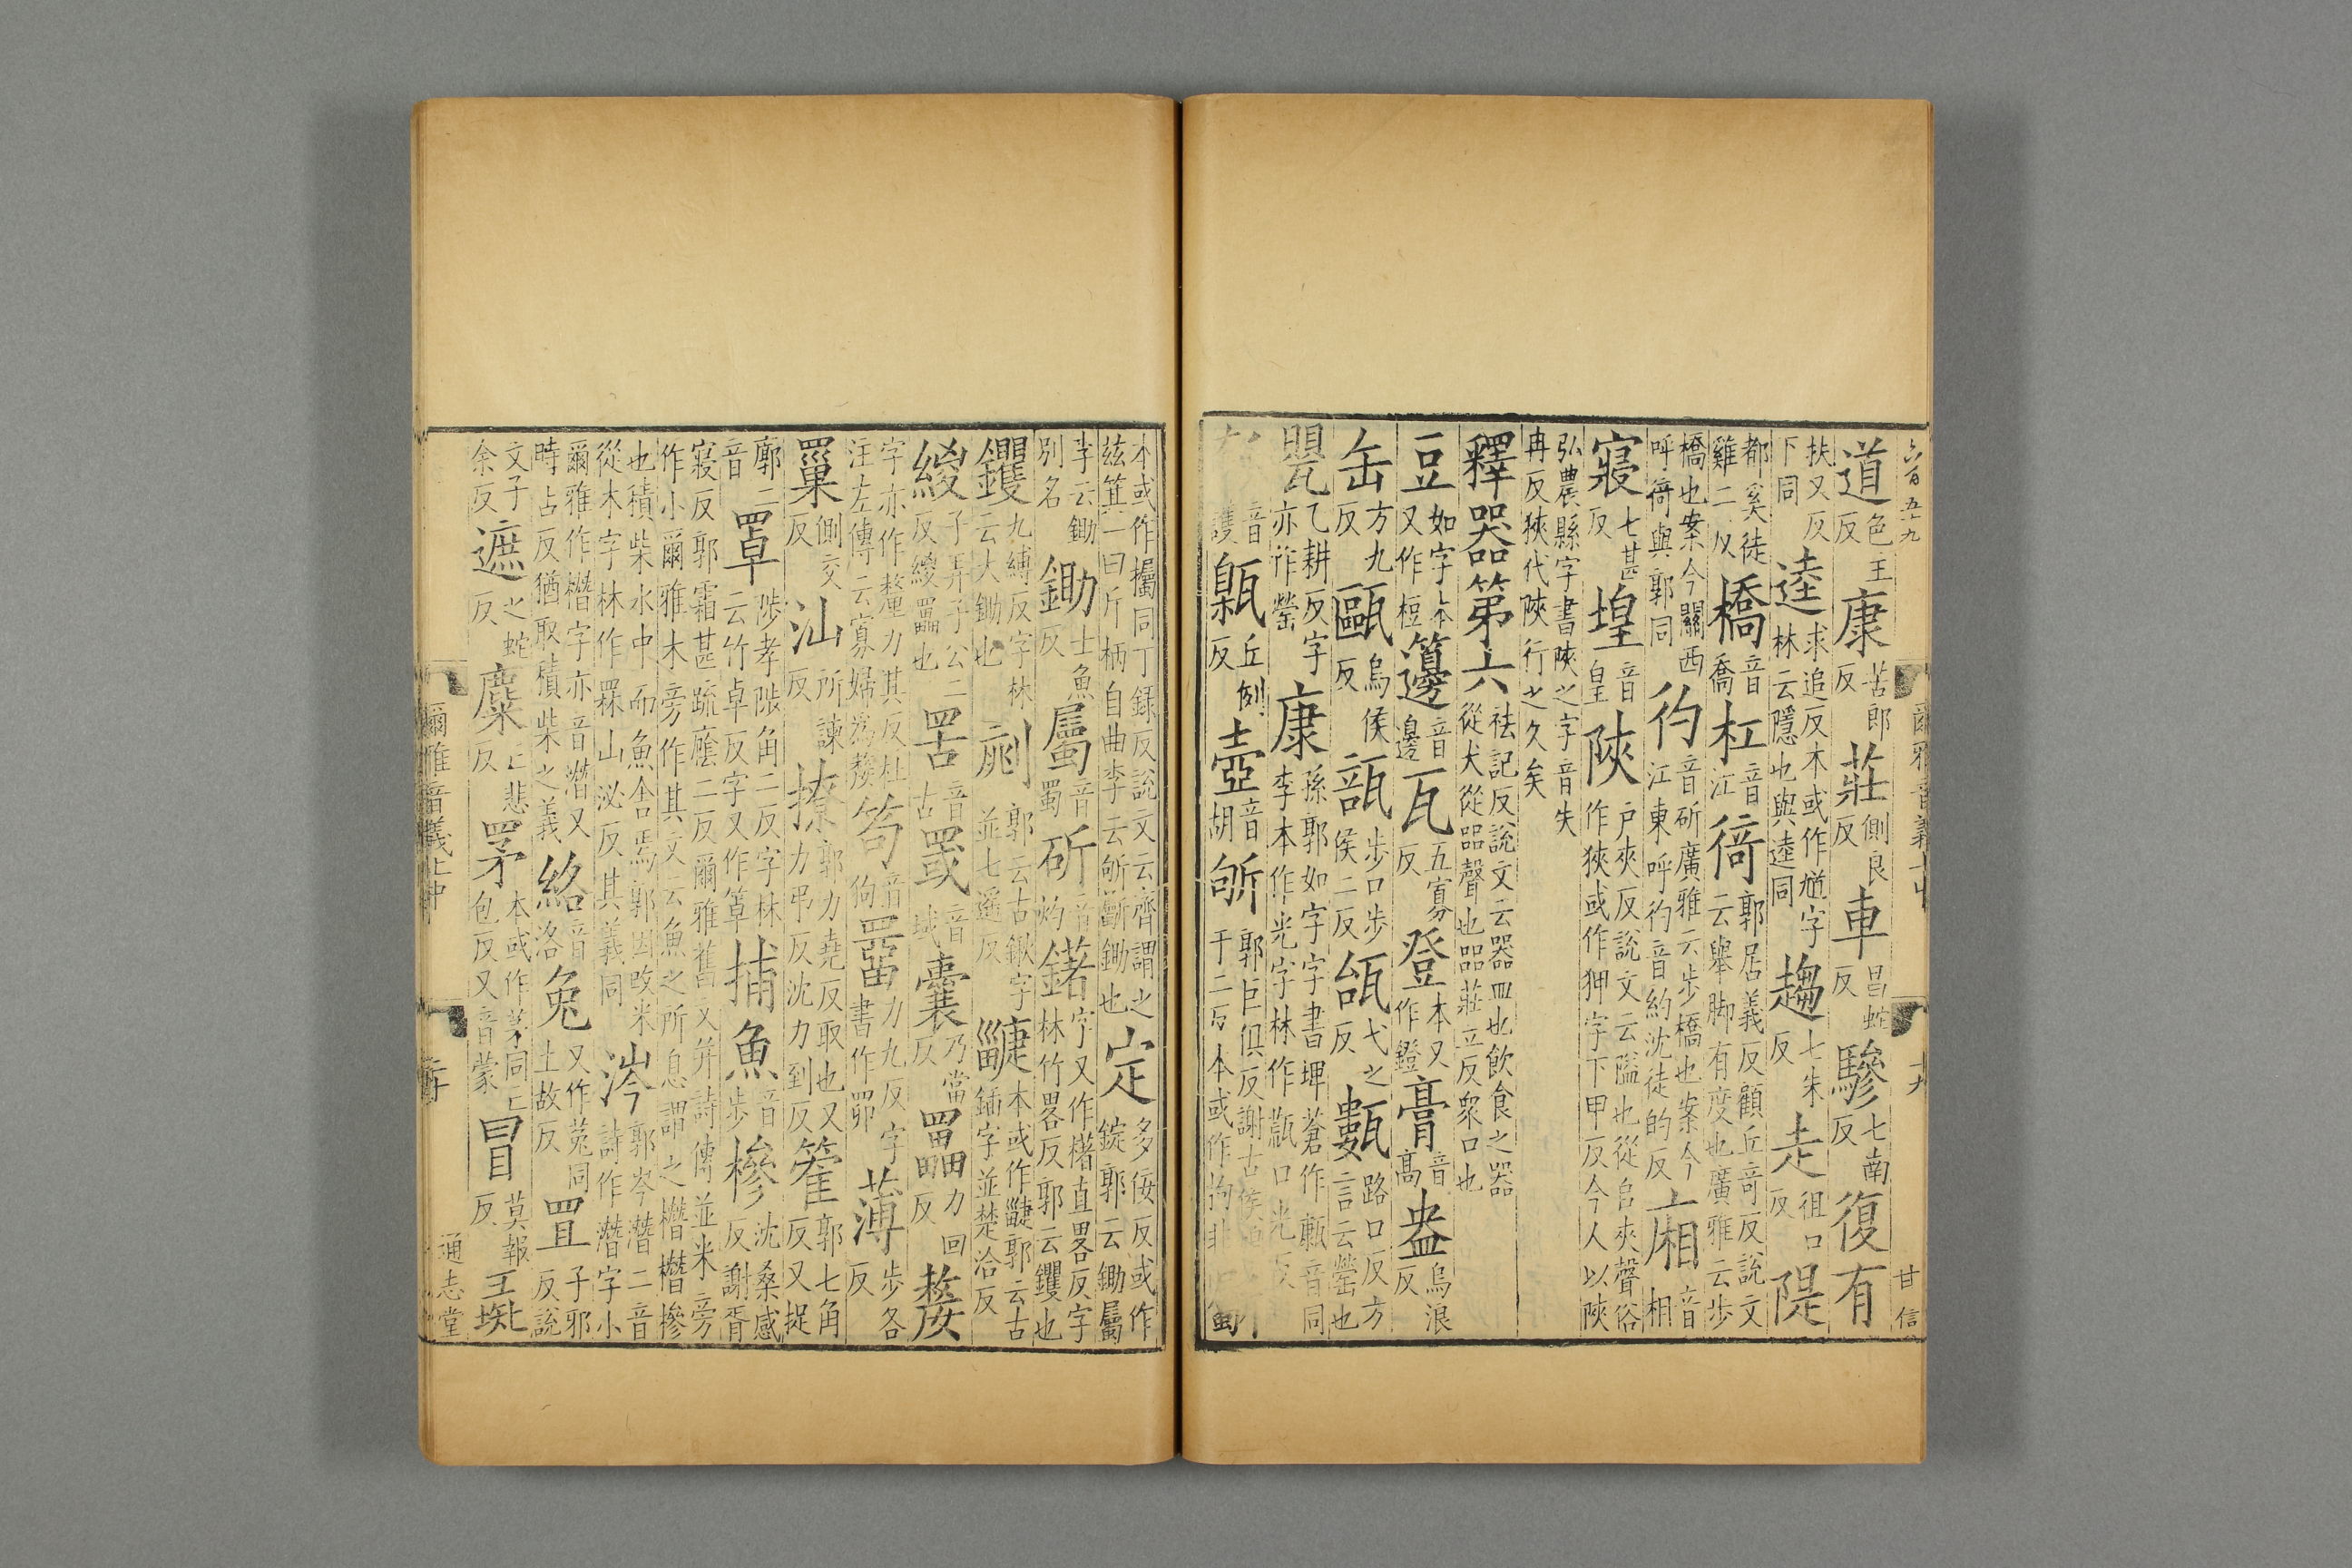 六百五九
爾雅音義上中
十九
甘信
道色王反康苦郎反莊側良反車昌蛇反驂七南反復有
扶又反下同逵求追反木或作馗字林云隱也與逵同趨七朱反走徂口反隄
都奚徒雞二反橋音喬杠音江徛郭居義反顧丘奇反說文云舉脚有度也廣雅云步
橋也案今關西呼徛與郭同彴音斫廣雅云步橋也案今江東呼彴音約沈徒的反廂音相
寢七甚反堭音皇陜戶夾反說文云隘也從𨸏夾聲俗作狹或作狎字下甲反今人以陜
弘農縣字書陜之字音失冉反狹代陜行之久矣
釋器第六祛記反說文云器皿也飲食之器從犬從㗊聲也㗊莊立反衆口也
豆如字本又作梪籩音邊瓦五寡反登本又作鐙膏音高盎烏浪反
缶方九反甌烏侯反瓿步口步侯二反瓵弋之反甊路口反方言云罃也
甖乙耕反字亦作罃康孫郭如字字書埤蒼作音同李本作光字林作口光反
音護甈丘例反壺音胡斪郭巨俱反謝古侯二反本或作拘
本或作欘同丁録反說文云齊謂之茲箕一曰斤柄自曲李云斪斸鋤也定多佞反或作錠郭云鋤屬
李云鋤別名鋤士魚反屬音蜀斫音灼鍺字又作櫡直畧反字林竹畧反郭云钁也
钁九縛反字林云大鋤也郭云古鍬字並七遥反疀本或作郭云古鍤字並楚洽反
緵子弄子公二反緵罟也罟音古罭音域囊乃當反力回反嫠
字亦作釐力其反杜注左傳云寡婦爲嫠笱音狗罶力九反字書作罶薄步各反
罺側交反汕所諫反撩郭力堯反取也又力弔反沈力到反籗郭七角反又捉
廓二音罩陟孝陟角二反字林云竹卓反字又作箌捕魚音步槮沈桑感反謝胥
寢反郭霜甚疏廕二反爾雅舊文并詩傳並米旁作小爾雅木旁作其文云魚之所息謂之橬橬槮
也積柴水中而魚舍焉郭因改米從木字林作罧山泌反其義同涔郭岑潛二音詩作潛字小
爾雅作橬字亦音潛又時占反猶取積柴之義絡音洛兔又作菟同土故反罝子邪反說
文子余反遮之蛇反麋亡悲反罞本或作茅同亡包反又音蒙冒莫報反彘
爾雅音義上中
二十
通志堂